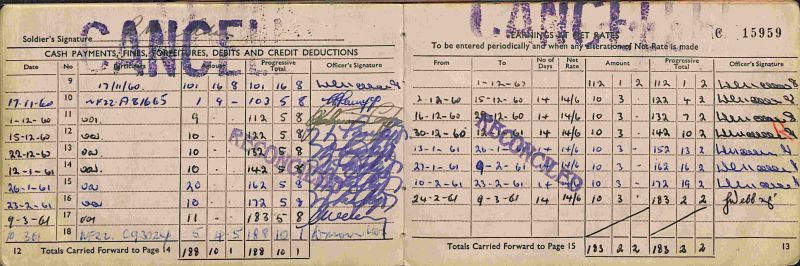 CANCEL
Soldier's Signature
CASH PAYMENTS, FINES, FORFEITURES, DEBITS AND CREDIT DEDUCTIONS
Date No Particulars Amount Progressive Total Officer's Signature
9 17/11/60. 101 16 8 101 16 8
17-11-60 10 NF22.A81665 1 9 - 103 5 8
1-12-60 11 9 112 5 8
15-12-60 12 10 - 122 5 8
22-12-60 13 10 - 132 5 8
12-1-61 14 10 - 142 5 8
26-1-61 15 20 162 5 8
23-2-61 16 10 - 172 5 8
9-3-61 17 11 - 183 5 8
10.3.61 18 NF22. C93024 5 4 5 188 10 1
12 Totals Carried Forward to Page 14 188 10 1 188 10 1
RECONCILED
CANCEL
C 15959
EARNINGS AT NET RATES
To be entered periodically and when any alteration of Net Rate is made
From To No of Days Net Rate Amount Progressive Total Officer's Signature
1-12-60 112 1 2 112 1 2
2-12-60 15-12-60 14 14/6 10 3 - 122 4 2
16-12-60 14 14/6 10 3 - 132 7 2
30-12-60 14 14/6 10 3 - 142 10 2
13-1-61 26-1-61 14 14/6 10 3 - 152 13 2
27-1-61 9-2-61 14 14/6 10 3 - 162 16 2
10-2-61 23-2-61 14 14/6 10 3 - 172 19 2
24-2-61 9-3-61 14 14/6 10 3 - 183 2 2
Totals Carried Forward to Page 15 183 2 2 183 2 2
13
RECONCILED